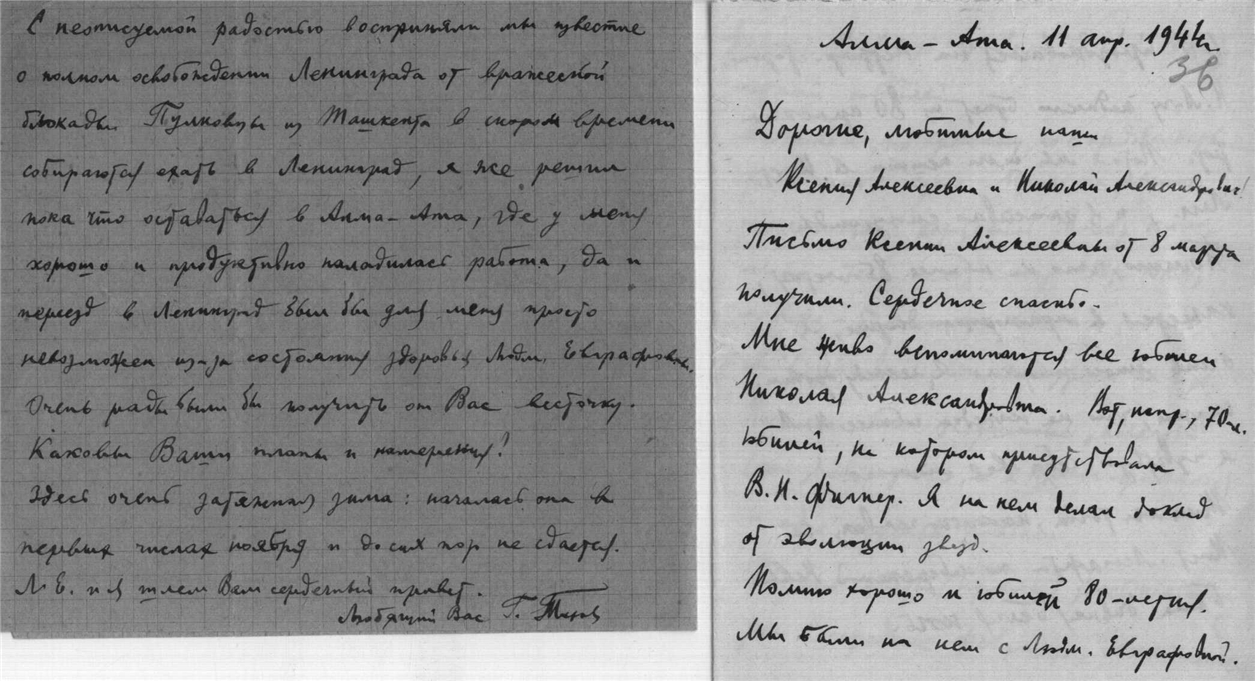 С неописуемой радостью восприняли мы известие
о полном освобождении Ленинграда от вражеской
блокады. Пулковцы из Ташкента в скором времени
собираются ехать в Ленинград, я же решил
пока что оставаться в Алма-Ата, где у меня
хорошо и продуктивно наладилась работа, да и
переезд в Ленинград был бы для меня просто
невозможен из-за состояния здоровья Людм. Евграфовны.
Очень рады были бы получить от Вас весточку.
Каковы Ваши планы и намерения?
Здесь очень затяжная зима: началась она в
первых числах ноября и до сих пор не сдается.
Л. Е. и я шлем Вам сердечный привет.
Любящий Вас Г. Тихов
Алма-Ата. 11 апр. 1944г.
36
Дорогие, любимые наши
Ксения Алексеевна и Николай Александрович!
Письмо Ксении Алексеевны от 8 марта
получили. Сердечное спасибо.
Мне живо вспоминаются все юбилеи
Николая Александровича. Вот, напр., 70-л.
юбилей, на котором присутствовала
В. Н. Фигнер. Я на нем делал доклад
об эволюции звезд.
Помню хорошо и юбилей 80-летия.
Мы были на нем с Людм. Евграфовной.